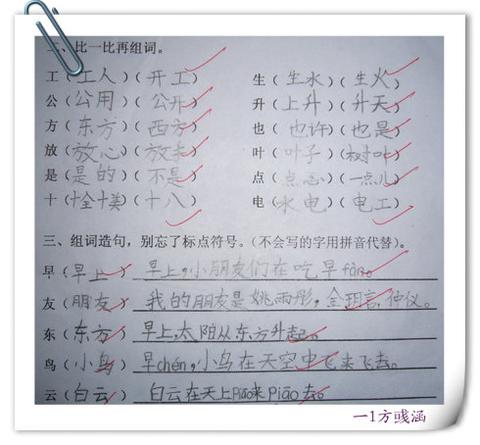 二、比一比再组词。
工（工人）（开工） 生（生水）（生火）
公（公用）（公开） 升（上升）（升天）
方（东方）（西方） 也（也许）（也是）
放（放心）（放手） 叶（叶子）（树叶）
是（是的）（不是） 点（点心）（一点儿）
十（十全十美）（十八） 电（水电）（电工）
三、组词造句，别忘了标点符号。（不会写的字用拼音代替）。
早（早上） 早上，小朋友们在吃早fàn。
友（朋友） 我的朋友是姚雨彤，金玥言，仲仪。
东（东方） 早上，太阳从东方升起。
鸟（小鸟） 早chén，小鸟在天空中飞来飞去。
云（白云） 白云在天上piāo来piāo去。
一1方彧涵